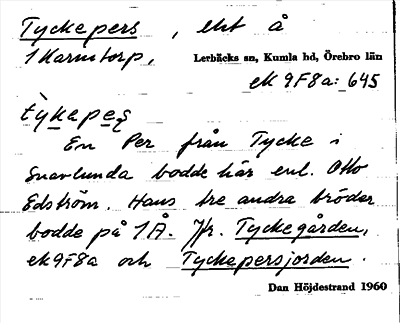 Tyckepers, ekt å
1 Karmtorp, Lerbäcks sn, Kumla hd, Örebro län
ek 9F8a: 645
týkapeş
En Per från Tycke i
Snavlunda bodde här enl. Otto
Edström. Hans tre andra bröder
bodde på 1Å. Jfr. Tyckegården,
ek 9F8a och Tyckepersjorden.
Dan Höjdestrand 1960